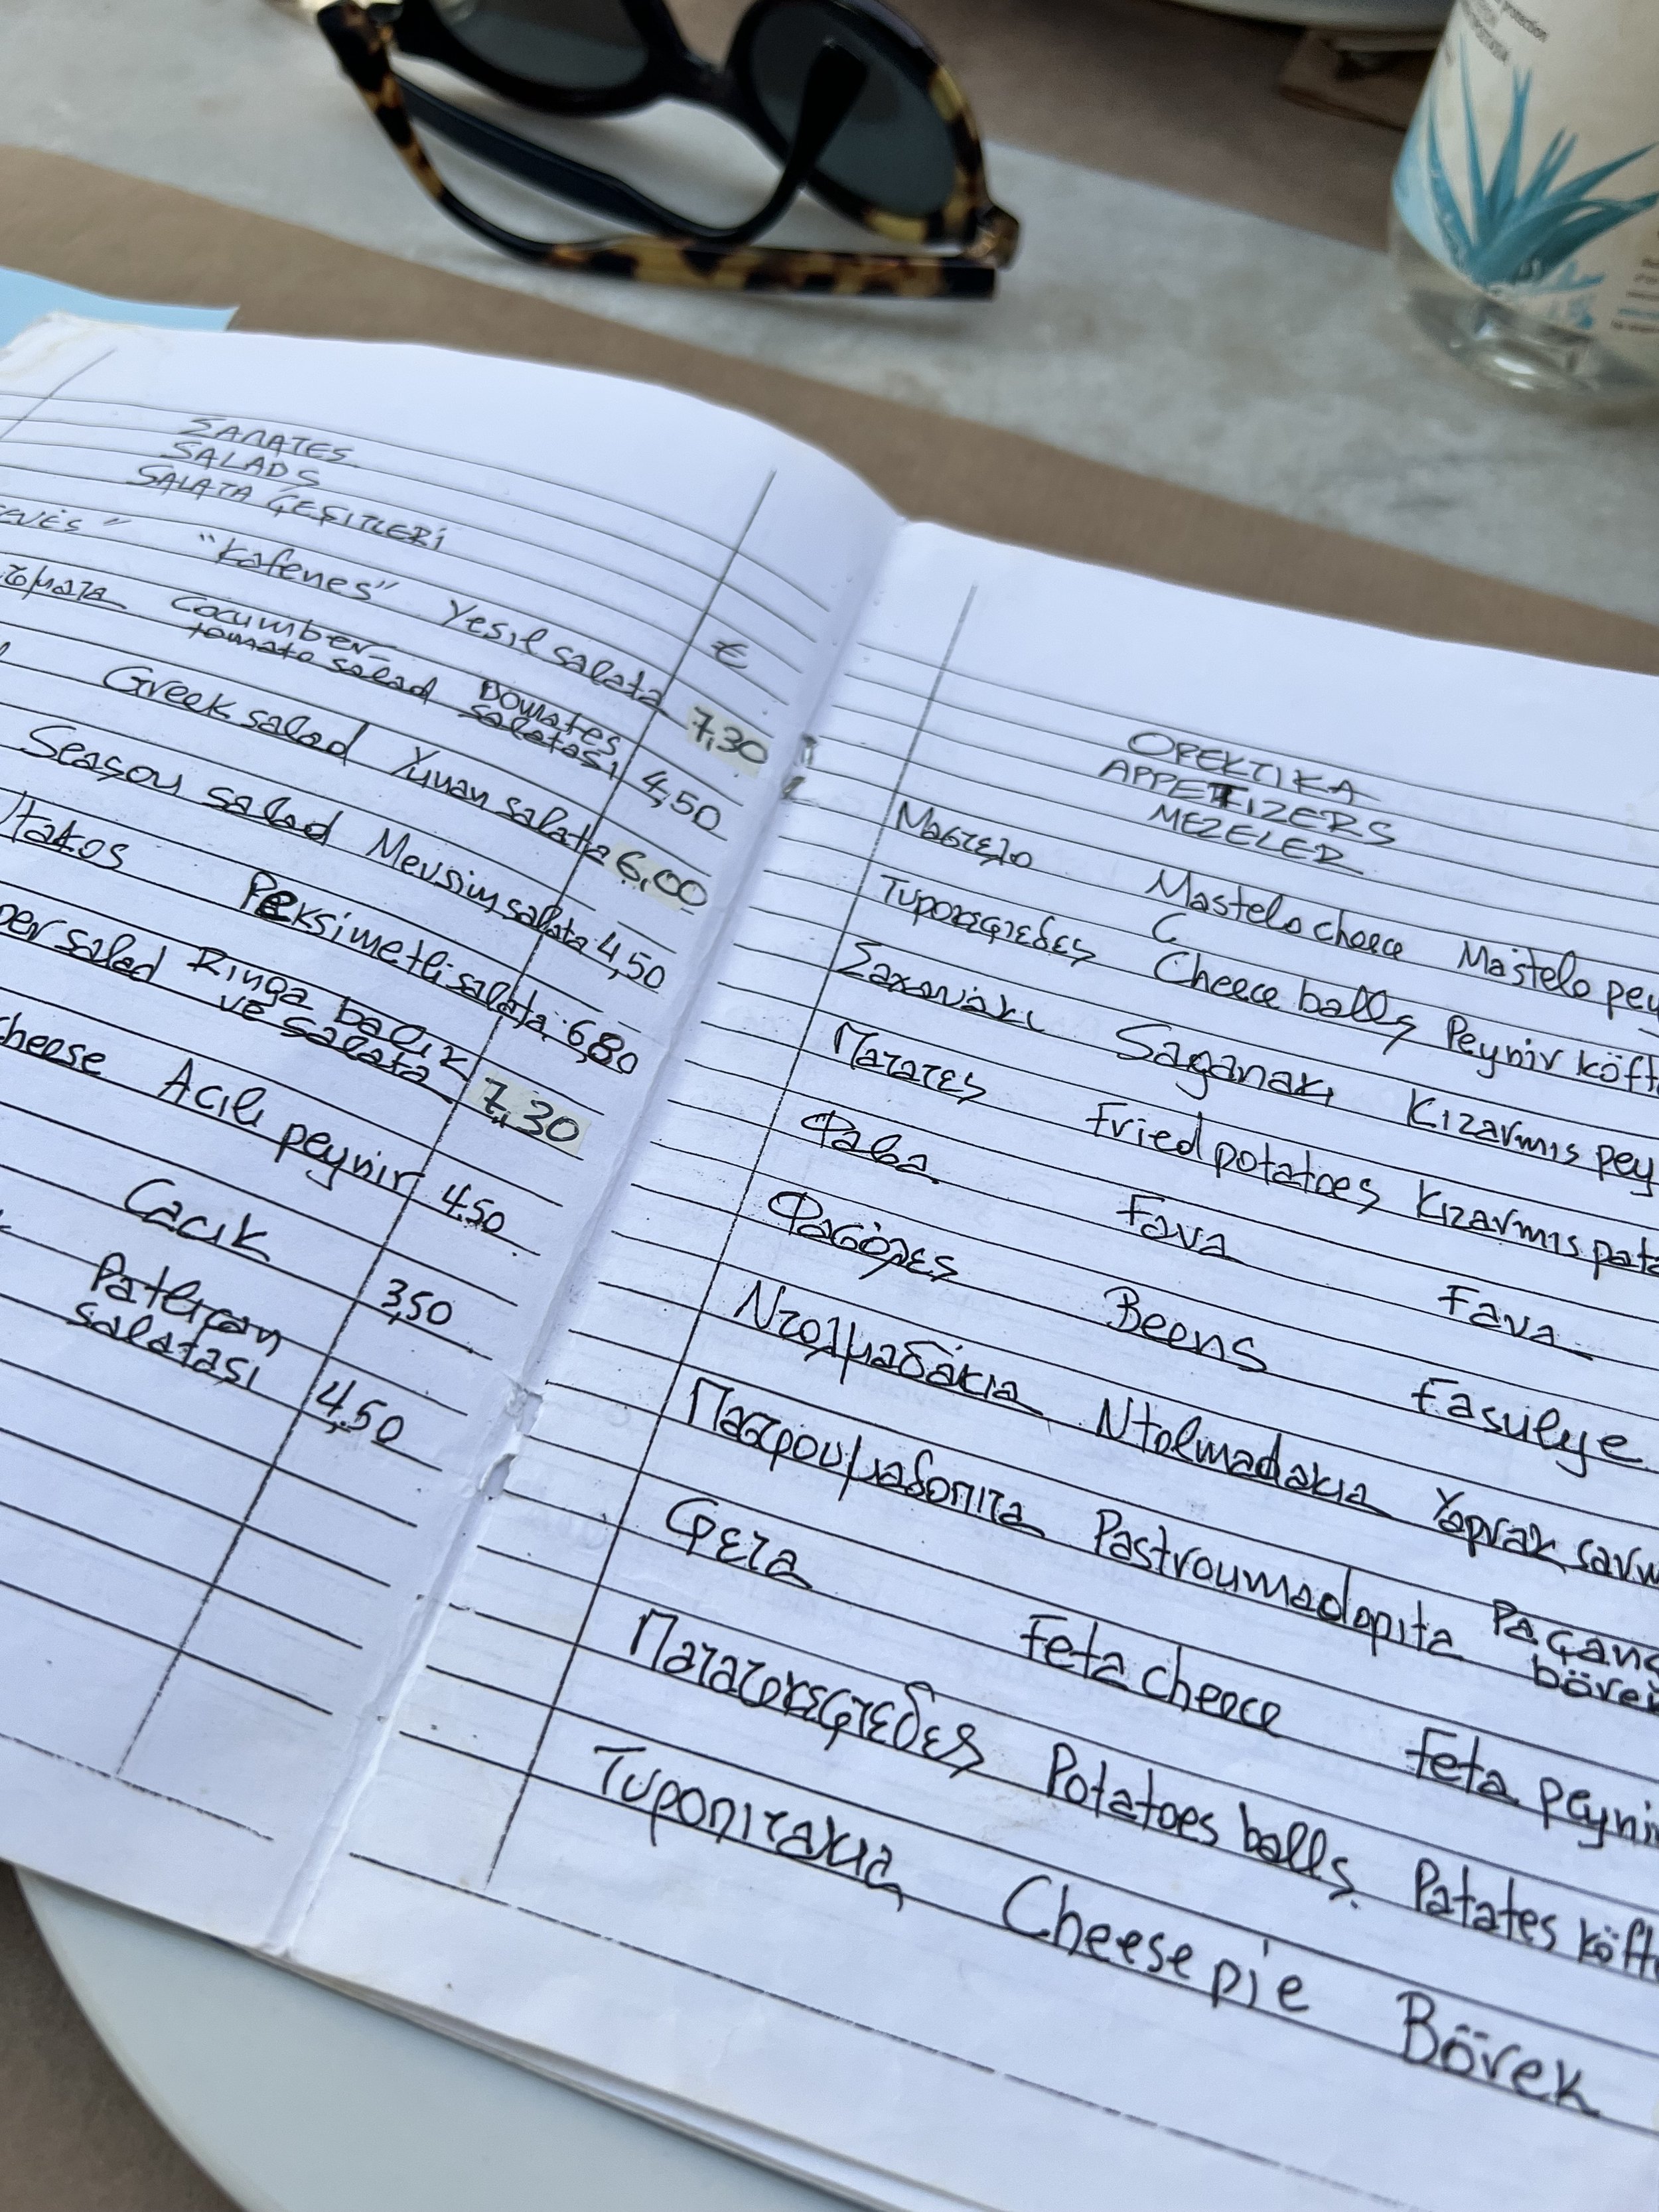 ΣΑΛΑΤΕΣ
SALADS
SALATA ÇEŞİTLERİ
€
"Kafenes" Yesıl salata 7,30
Cocumber tomato salad Domates salatası 4,50
Greek salad Yunan salata 6,00
Seasou salad Mevsim salata 4,50
Peksimetli salata 6,80
salad Ringa balık ve salata 7,30
cheese Acılı peynir 4.50
Cacık 3,50
Patlıçan salatası 4,50
ΟΡΕΚΤΙΚΑ
APPETIZERS
MEZELER
Μαστελο Mastelo cheece Mastelo
Τυροκεφτεδες Cheece balls Peynir
Σαχανάκι Saganakı Kızarmıs
Πατατες Fried potatoes Kızarmıs
Φαβα Fava Fava
Φασόλες Beens Fasulye
Ντολμαδάκια Ntolmadakıa Yaprak
Παστρουμαδοπιτα Pastroumadopıta
Φετα Feta cheece Feta
Πατατοκεφτεδες Potatoes balls. Patates
Τυροπιτακια Cheese pie Börek